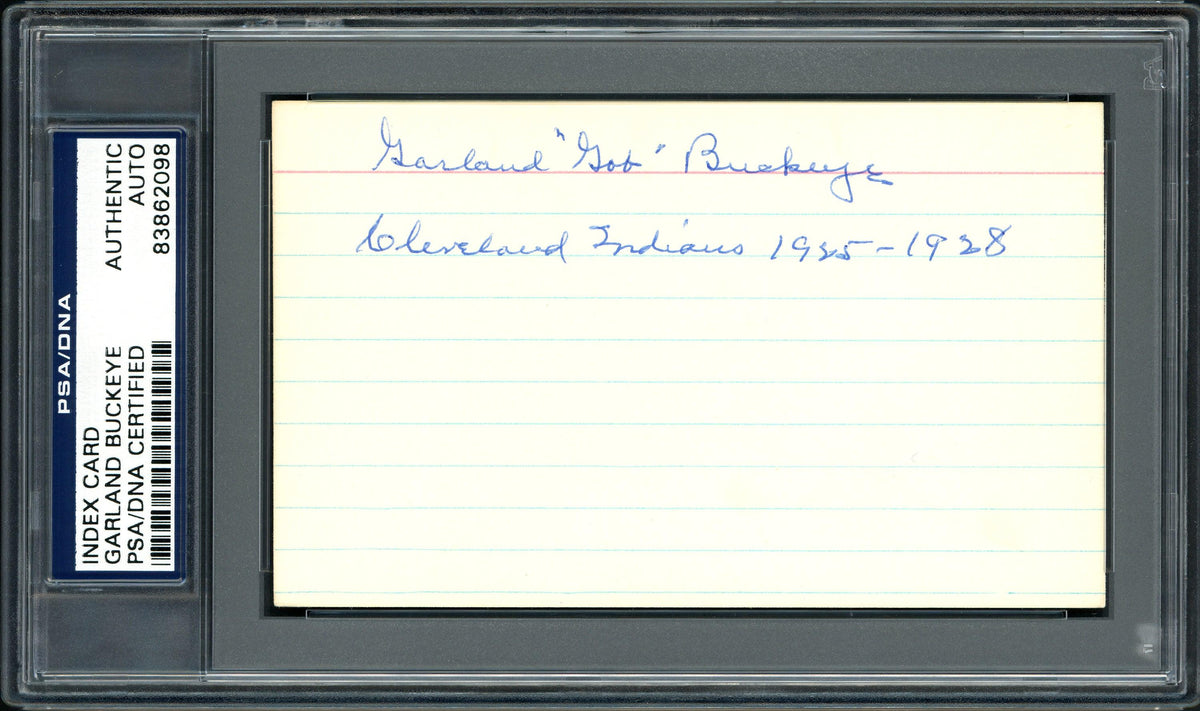 PSA/DNA
INDEX CARD
GARLAND BUCKEYE
PSA/DNA CERTIFIED
AUTHENTIC
AUTO
83862098
Garland "Gob" Buckeye
Cleveland Indians 1925-1928